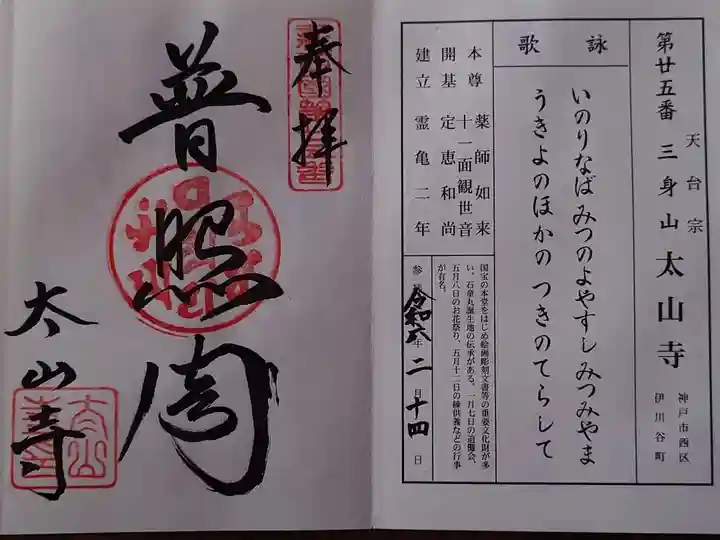 第廿五番 三身山 太山寺
天台宗
神戸市西区
伊川谷町
詠歌
いのりなば みつのよやすし みつみやま
うきよのほかの つきのてらして
本尊 薬師如来
十一面観世音
開基 定恵和尚
建立 霊亀二年
国宝の本堂をはじめ絵画彫刻文書等の重要文化財が多
い。石童丸誕生地の伝承がある。一月七日の追儺会、
五月八日のお花祭り、五月十二日の練供養などの行事
が有名。
年 二月 十四日
奉拝
普照閣
太山寺